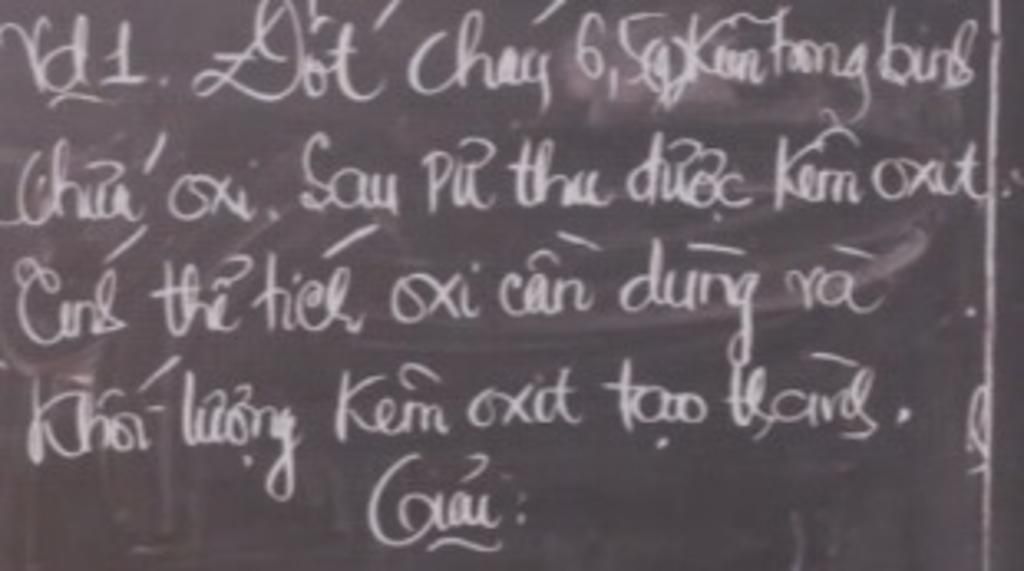 Vd1. Đốt cháy 6,5g Kẽm trong bình
chứa oxi. Sau PƯ thu được Kẽm oxit.
Tính thể tích oxi cần dùng và
Khối lượng Kẽm oxit tạo thành.
Giải: